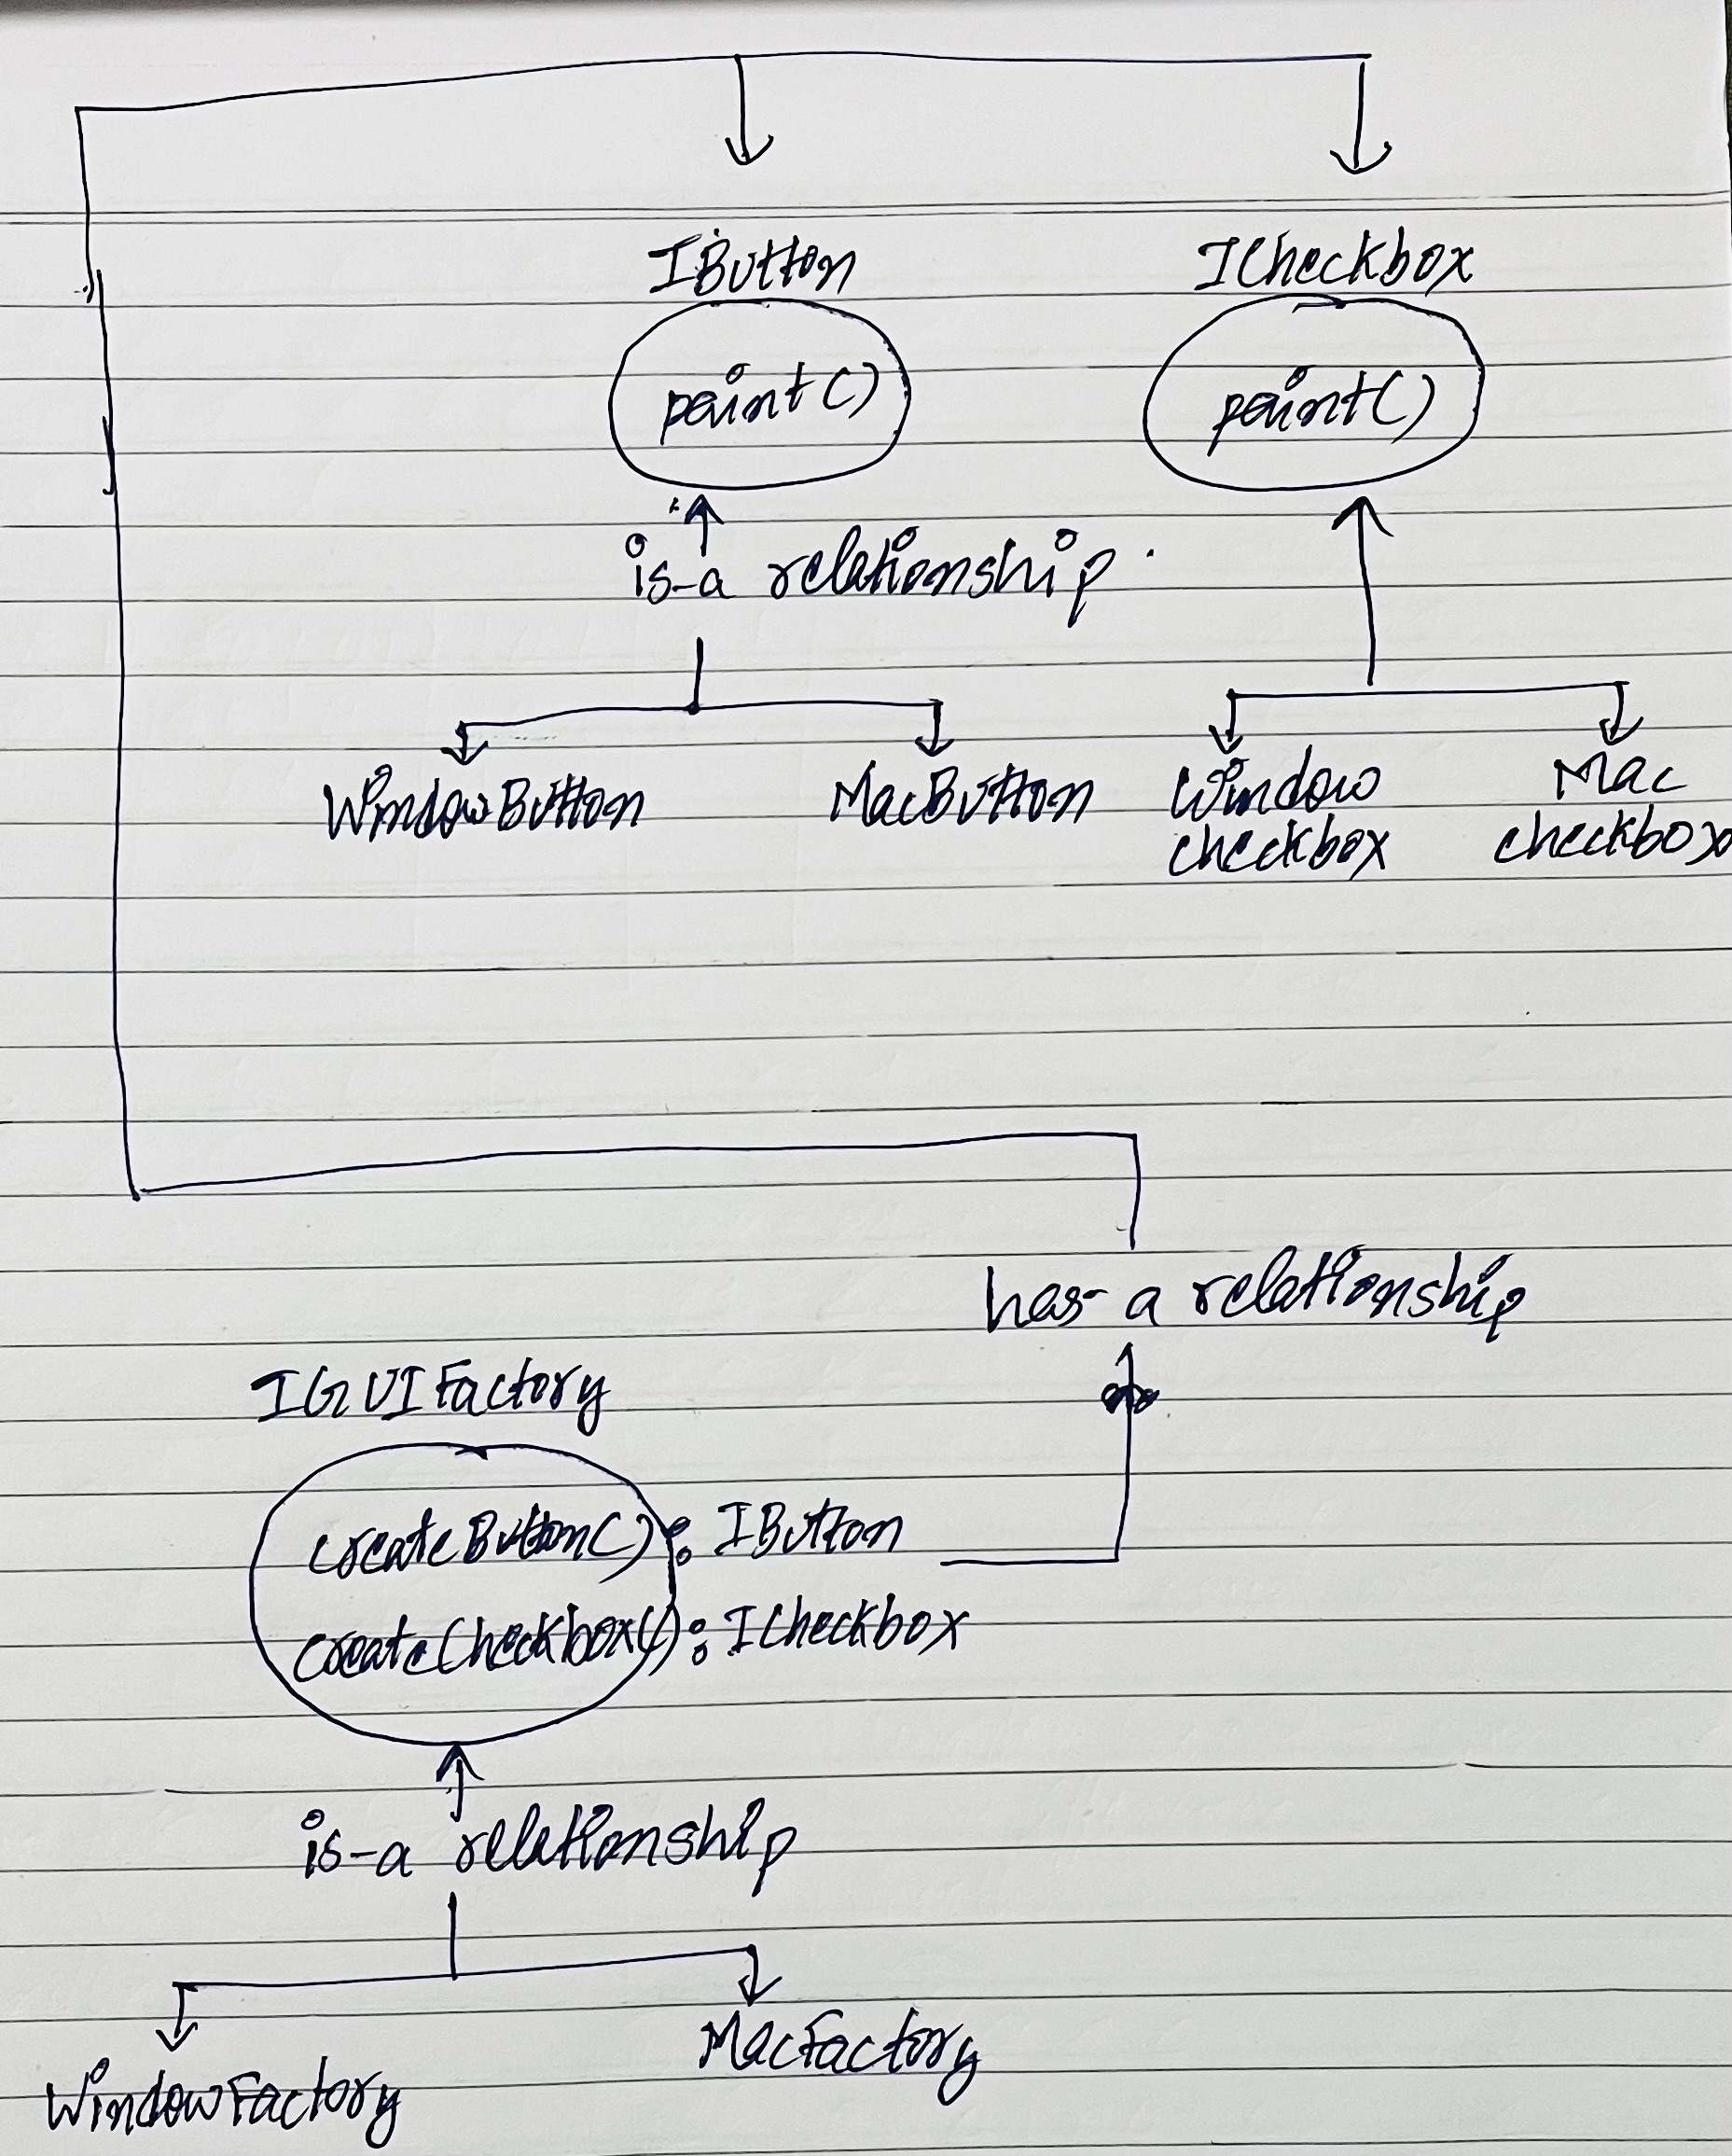 IButton ICheckbox
paint() paint()
is-a relationship
WindowButton MacButton Window Mac
checkbox checkbox
has-a relationship
IGUIFactory
createButton() : IButton
createCheckbox() : ICheckbox
is-a relationship
MacFactory
WindowFactory